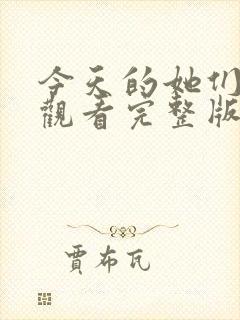 今天的她们
觀看完整版
賈布瓦